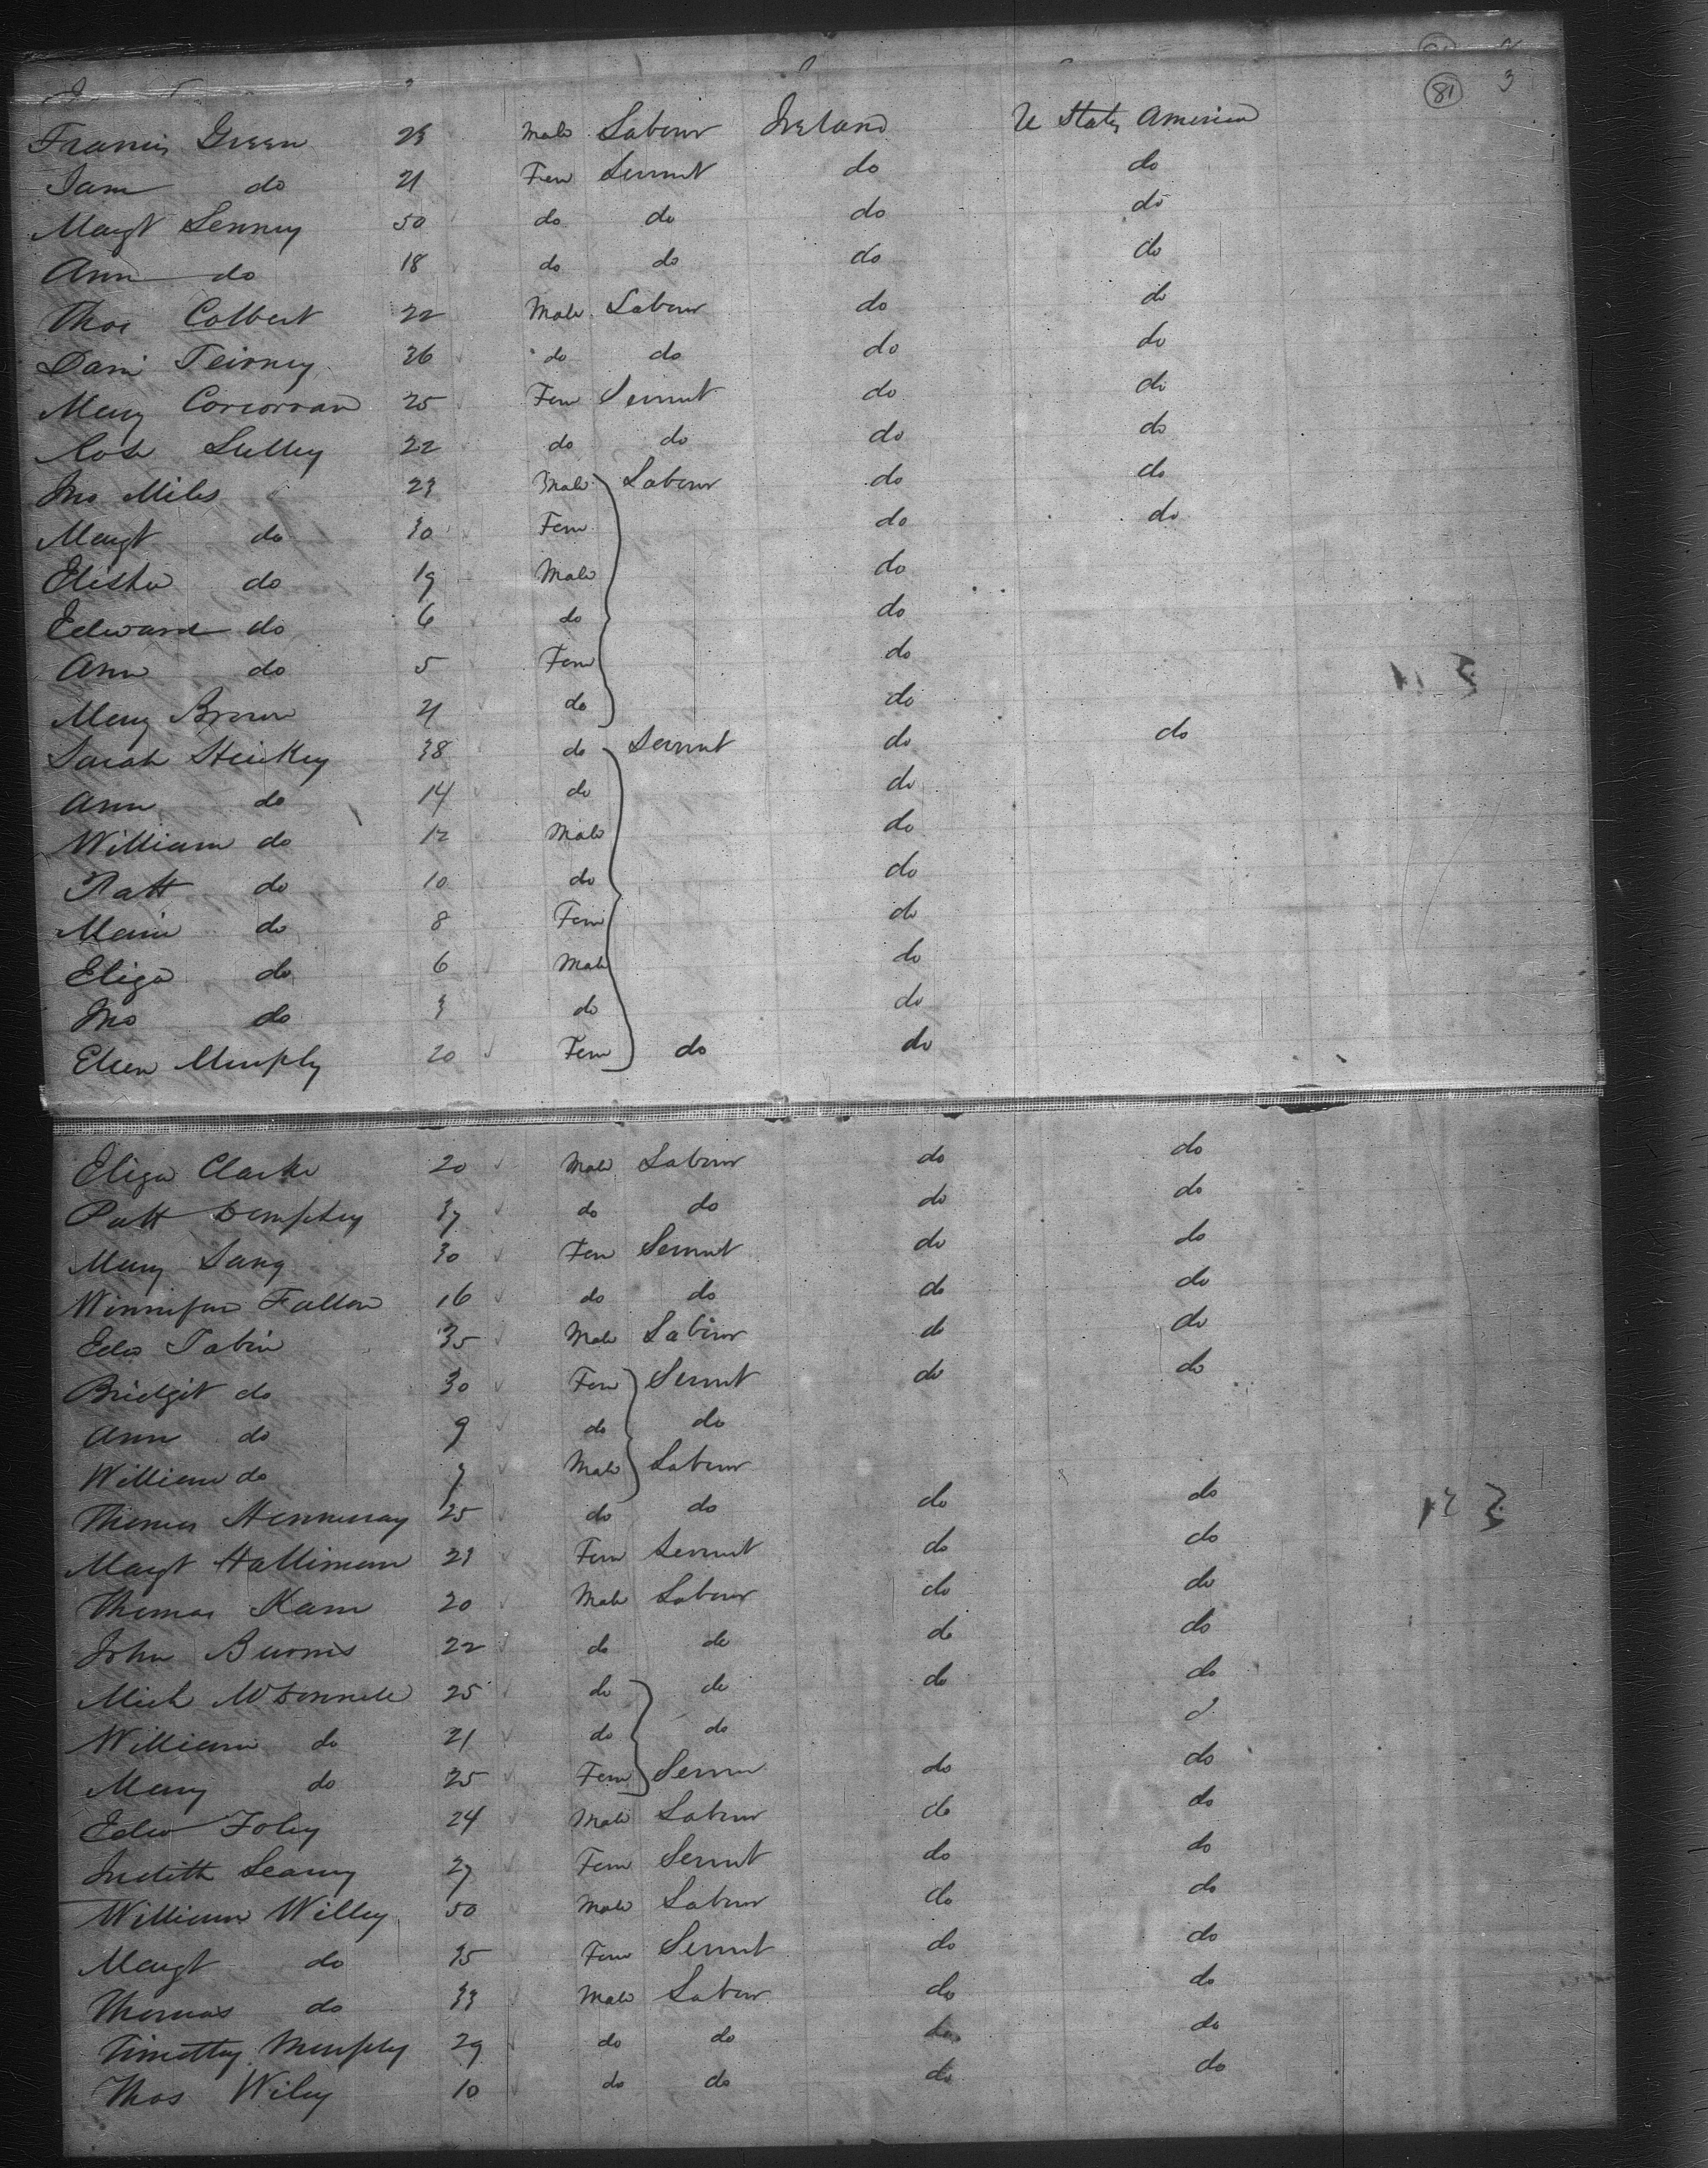 81 3
Francis Green 23 Male Labour Ireland U States America
Jam do 21 Fem Servnt do do
Margt Lenney 50 do do do do
Ann do 18 do do do do
Thos Colbert 22 Male Labour do do
Danl Teirney 36 do do do do
Mary Corcorran 25 Fem Servnt do do
Rose Sulley 22 do do do do
Jno Miles 23 Male Labour do do
Margt do 30 Fem do do
Elisha do 19 Male do
Edward do 6 do do
Ann do 5 Fem do
Mary Brown 21 do do
Sarah Heickey 38 do Servnt do do
Ann do 14 do do
William do 12 Male do
Patt do 10 do do
Maria do 8 Fem do
Eliza do 6 Male do
Jno do 3 do do
Ellen Murphy 20 Fem do do
Eliza Clarke 20 Male Labour do do
Patt Dempsey 37 do do do do
Mary Lang 30 Fem Servnt do do
Winnifan Fallon 16 do do do do
Edw Tobin 35 Male Labour do do
Bridgit do 30 Fem Servnt do do
Ann do 9 do do
William do 7 Male Labour
Thomas Hennessay 25 do do do do
Margt Hallinan 23 Fem Servnt do do
Thomas Kam 20 Male Labour do do
John Buorns 22 do do do do
Mich McDonnell 25 do do do do
William do 21 do do
Mary do 25 Fem Servn do do
Edw Foley 24 Male Labour do do
Judith Leamy 27 Fem Servnt do do
William Willey 50 Male Labour do do
Margt do 35 Fem Servnt do do
Thomas do 33 Male Labour do do
Timothy Murphy 29 do do do do
Thos Wiley 10 do do do do